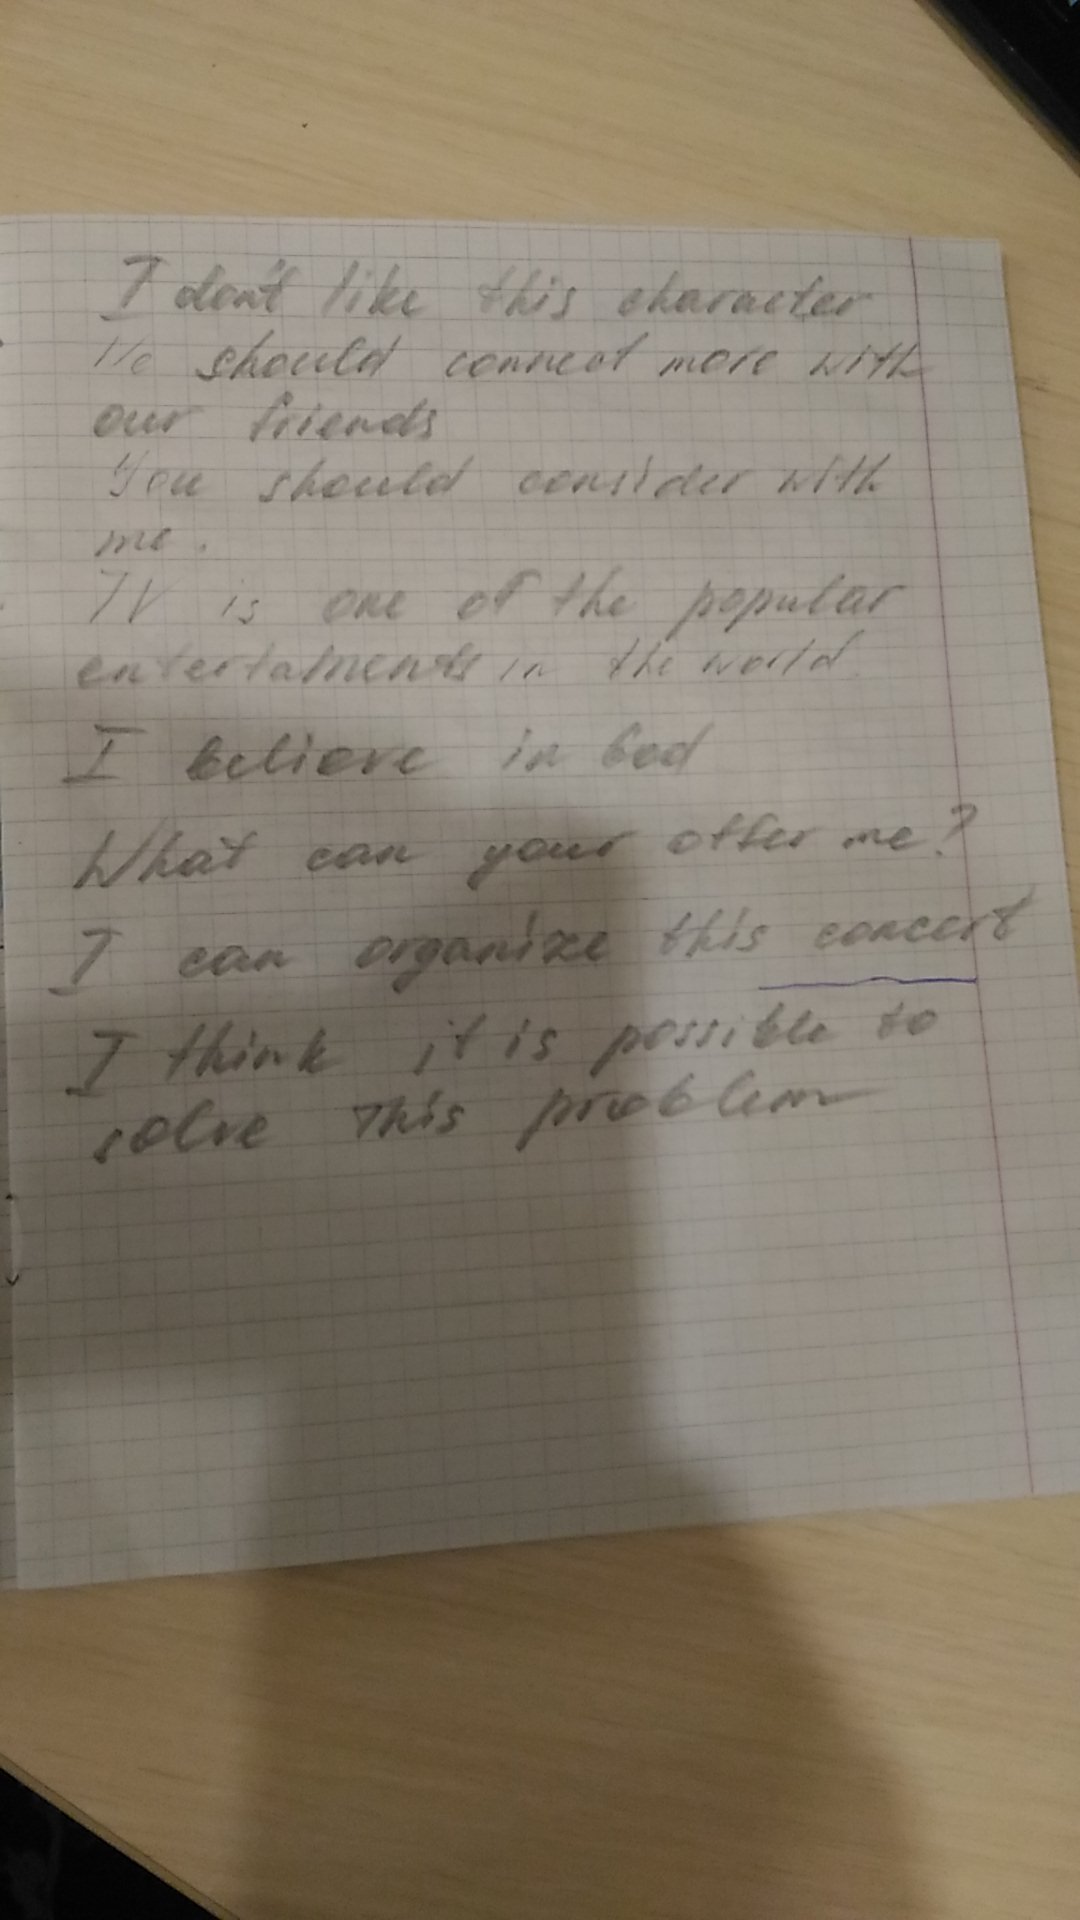 I don't like this character
should connect more with
our friends
You should consider with
me.
TV is one of the popular
entertaments in the world.
I believe in God
What can your offer me?
I can organize this concert
I think it is possible to
solve this problem